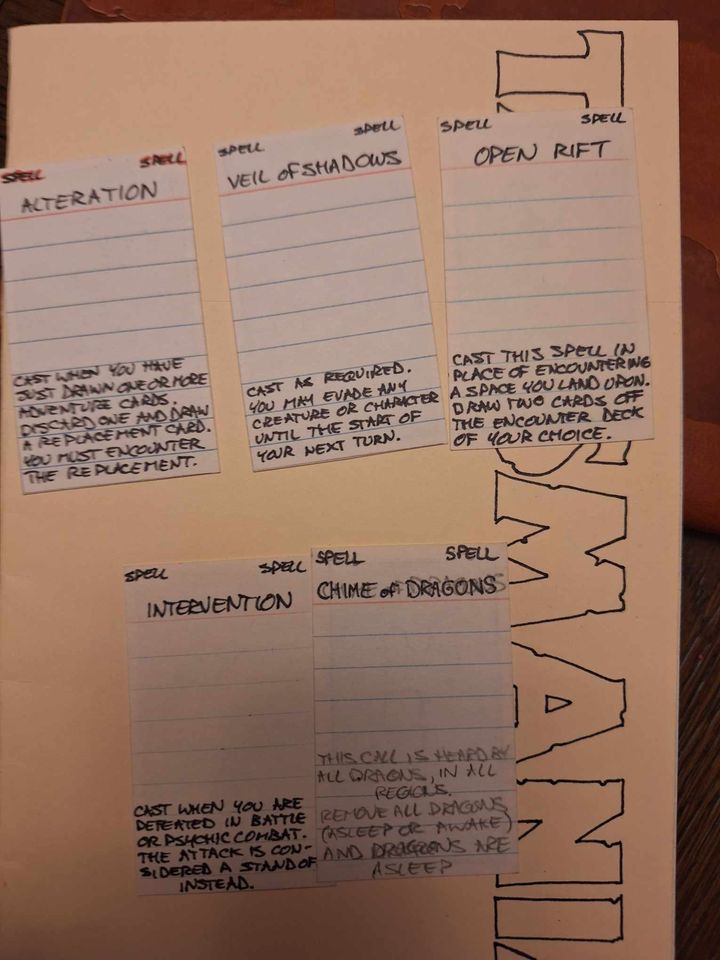 SPELL SPELL
ALTERATION
CAST WHEN YOU HAVE
JUST DRAWN ONE OR MORE
ADVENTURE CARDS.
DISCARD ONE AND DRAW
A REPLACEMENT CARD.
YOU MUST ENCOUNTER
THE REPLACEMENT.
SPELL SPELL
VEIL of SHADOWS
CAST AS REQUIRED.
YOU MAY EVADE ANY
CREATURE OR CHARACTER
UNTIL THE START OF
YOUR NEXT TURN.
SPELL SPELL
OPEN RIFT
CAST THIS SPELL IN
PLACE OF ENCOUNTERING
A SPACE YOU LAND UPON.
DRAW TWO CARDS OFF
THE ENCOUNTER DECK
OF YOUR CHOICE.
SPELL SPELL
INTERVENTION
CAST WHEN YOU ARE
DEFEATED IN BATTLE
OR PSYCHIC COMBAT.
THE ATTACK IS CON-
SIDERED A STANDOF
INSTEAD.
SPELL SPELL
CHIME of DRAGONS
THIS CALL IS HEARD BY
ALL DRAGONS, IN ALL
REGIONS.
REMOVE ALL DRAGONS
(ASLEEP OR AWAKE)
AND DRAGONS ARE
ASLEEP